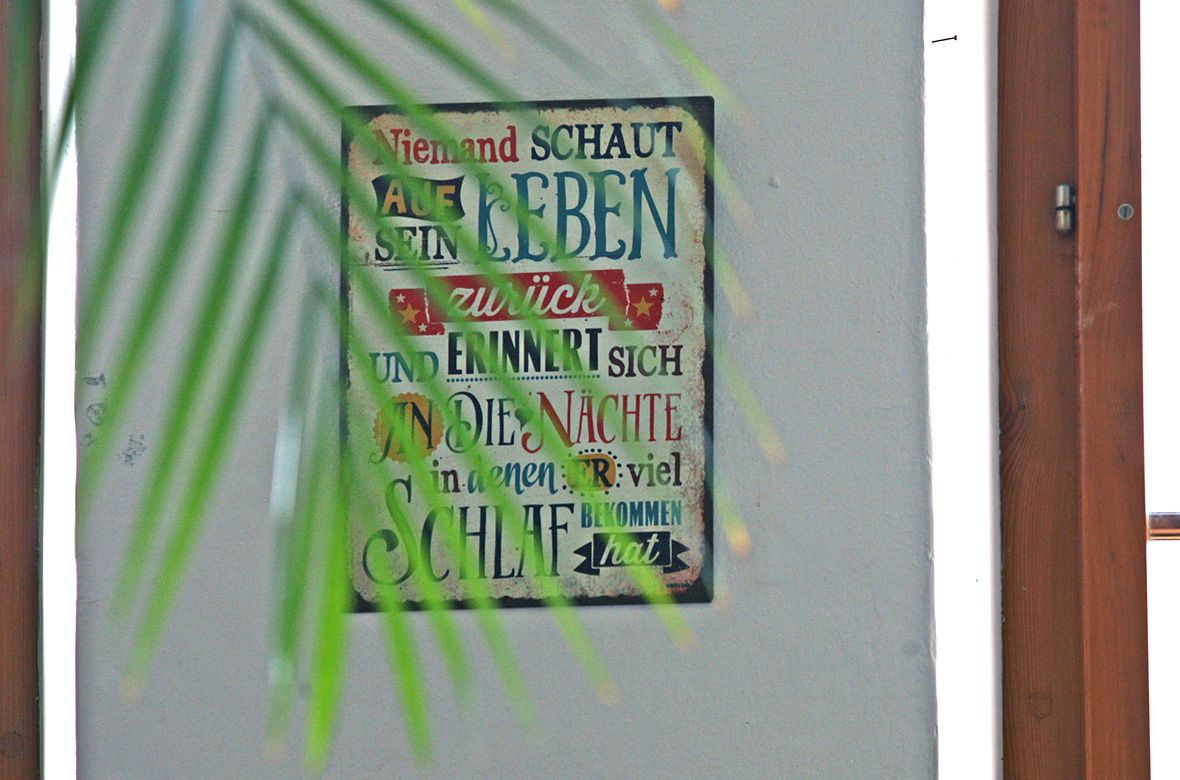 Niemand SCHAUT
AUF
SEIN LEBEN
zurück
UND ERINNERT SICH
AN DIE NÄCHTE
in denen ER viel
SCHLAF BEKOMMEN
hat